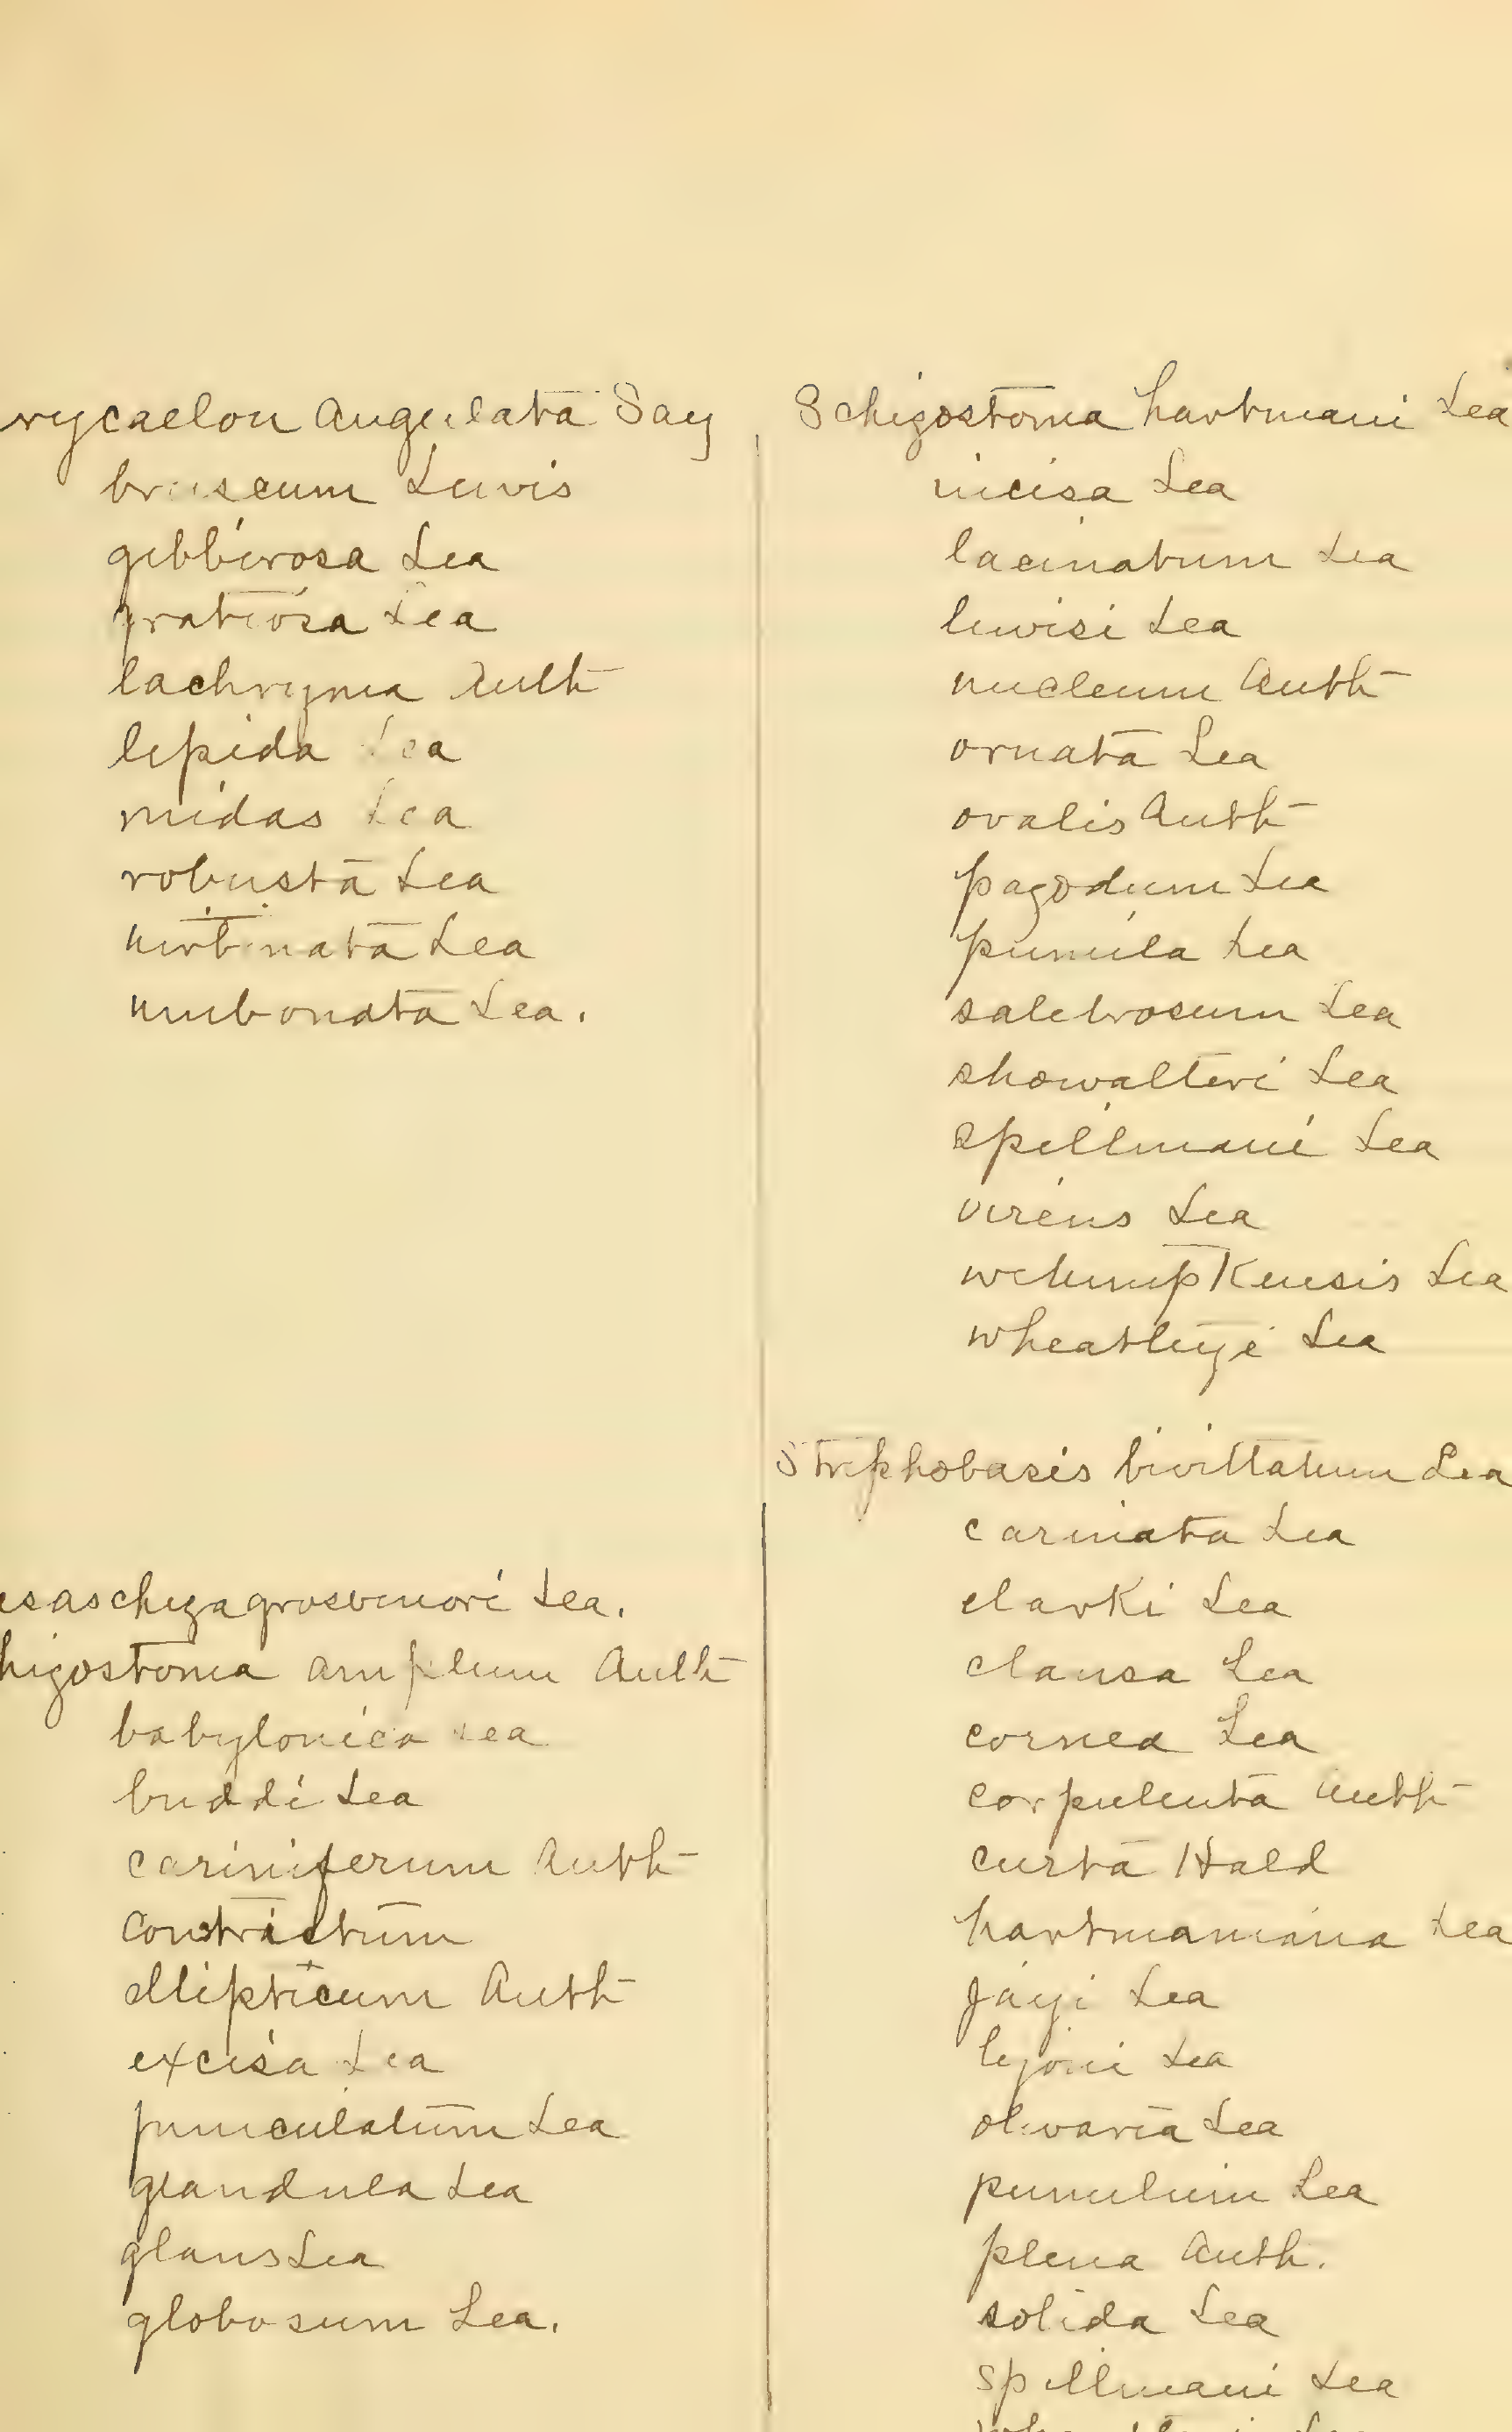 rycaelon angulata Say
bruscum Lewis
gibberosa Lea
gratiosa Lea
lachryma Anth
lepida Lea
midas Lea
robusta Lea
turbinata Lea
umbonata Lea.
esaschiza grosvenori Lea.
higostoma amplum Anth
babylonica Lea
buddi Lea
cariniferum Anth
constrictum
ellipticum Anth
excisa Lea
funiculatum Lea
glandula Lea
glans Lea
globosum Lea.
Schizostoma hartmani Lea
incisa Lea
lacinatum Lea
lewisi Lea
nucleum Anth
ornata Lea
ovalis Anth
pagodum Lea
pumila Lea
salebrosum Lea
showalteri Lea
spillmani Lea
virens Lea
wetumpkensis Lea
wheatleyi Lea
Strephobasis bivittatum Lea
carinata Lea
clarki Lea
clausa Lea
cornea Lea
corpulenta Anth
curta Hald
hartmaniana Lea
jayi Lea
lyoni Lea
olivaria Lea
pumilum Lea
plena Anth.
solida Lea
spillmani Lea